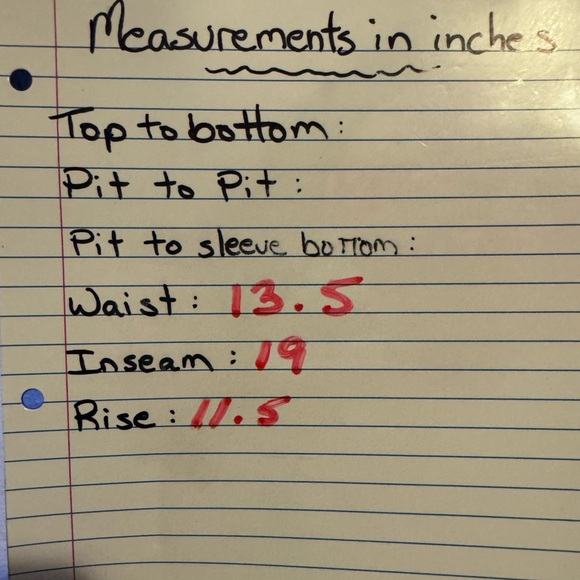 Measurements in inches
Top to bottom:
Pit to Pit:
Pit to sleeve bottom:
Waist: 13.5
Inseam: 19
Rise: 11.5